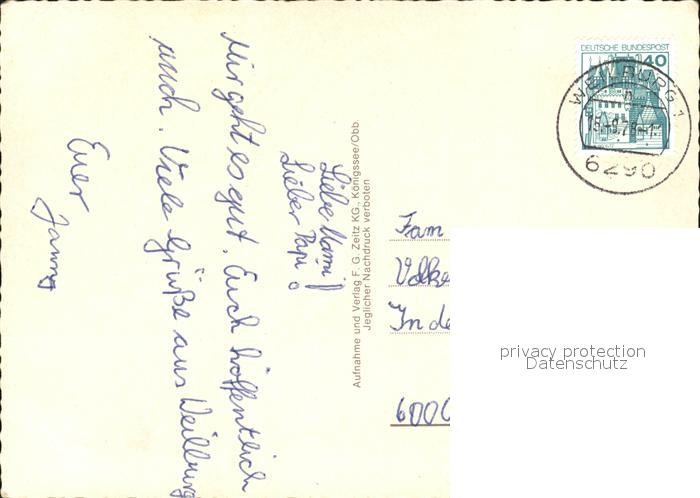 Liebe Mami!
Lieber Papi!
Mir geht es gut. Euch hoffentlich
auch. Viele Grüße aus Weilburg
Euer
Aufnahme und Verlag F. G. Zeitz KG., Königssee/Obb.
Jeglicher Nachdruck verboten
DEUTSCHE BUNDESPOST
40
WEILBURG 1
6290
Fam
Volke
In de
6000
privacy protection
Datenschutz